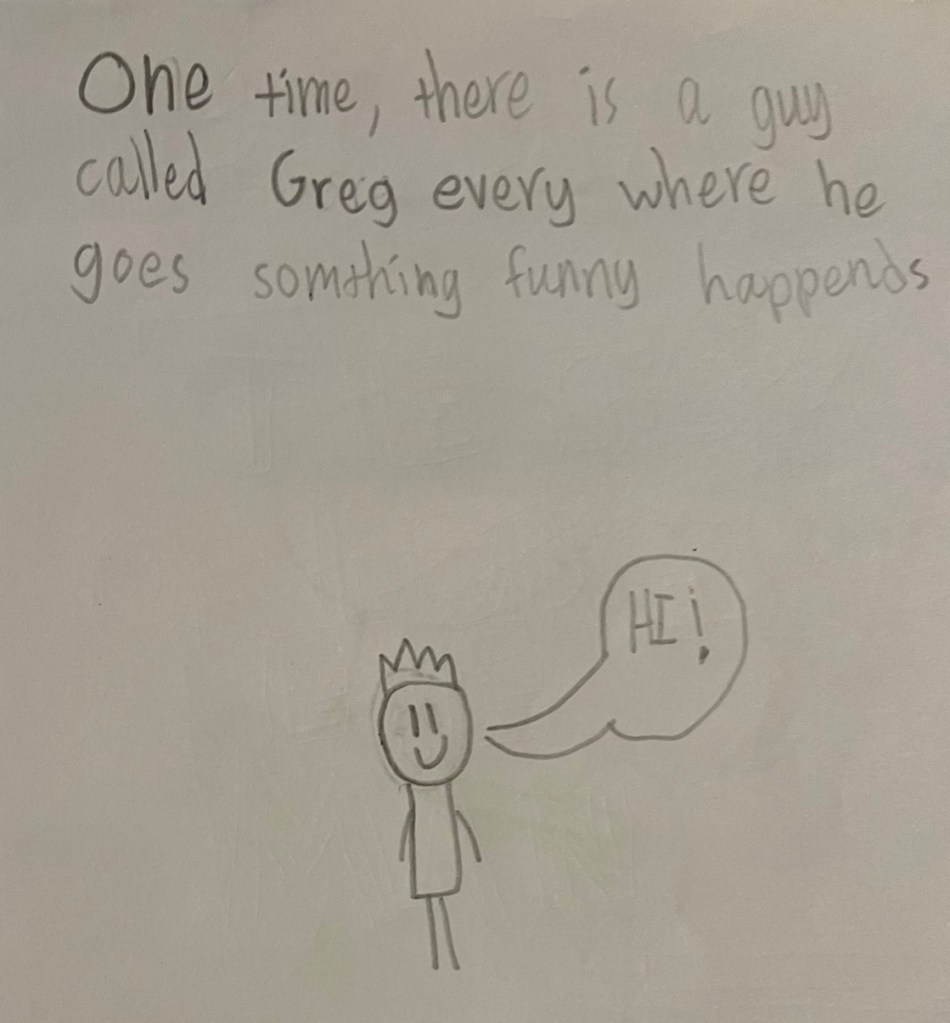 One time, there is a guy
called Greg every where he
goes somthing funny happends
HI!